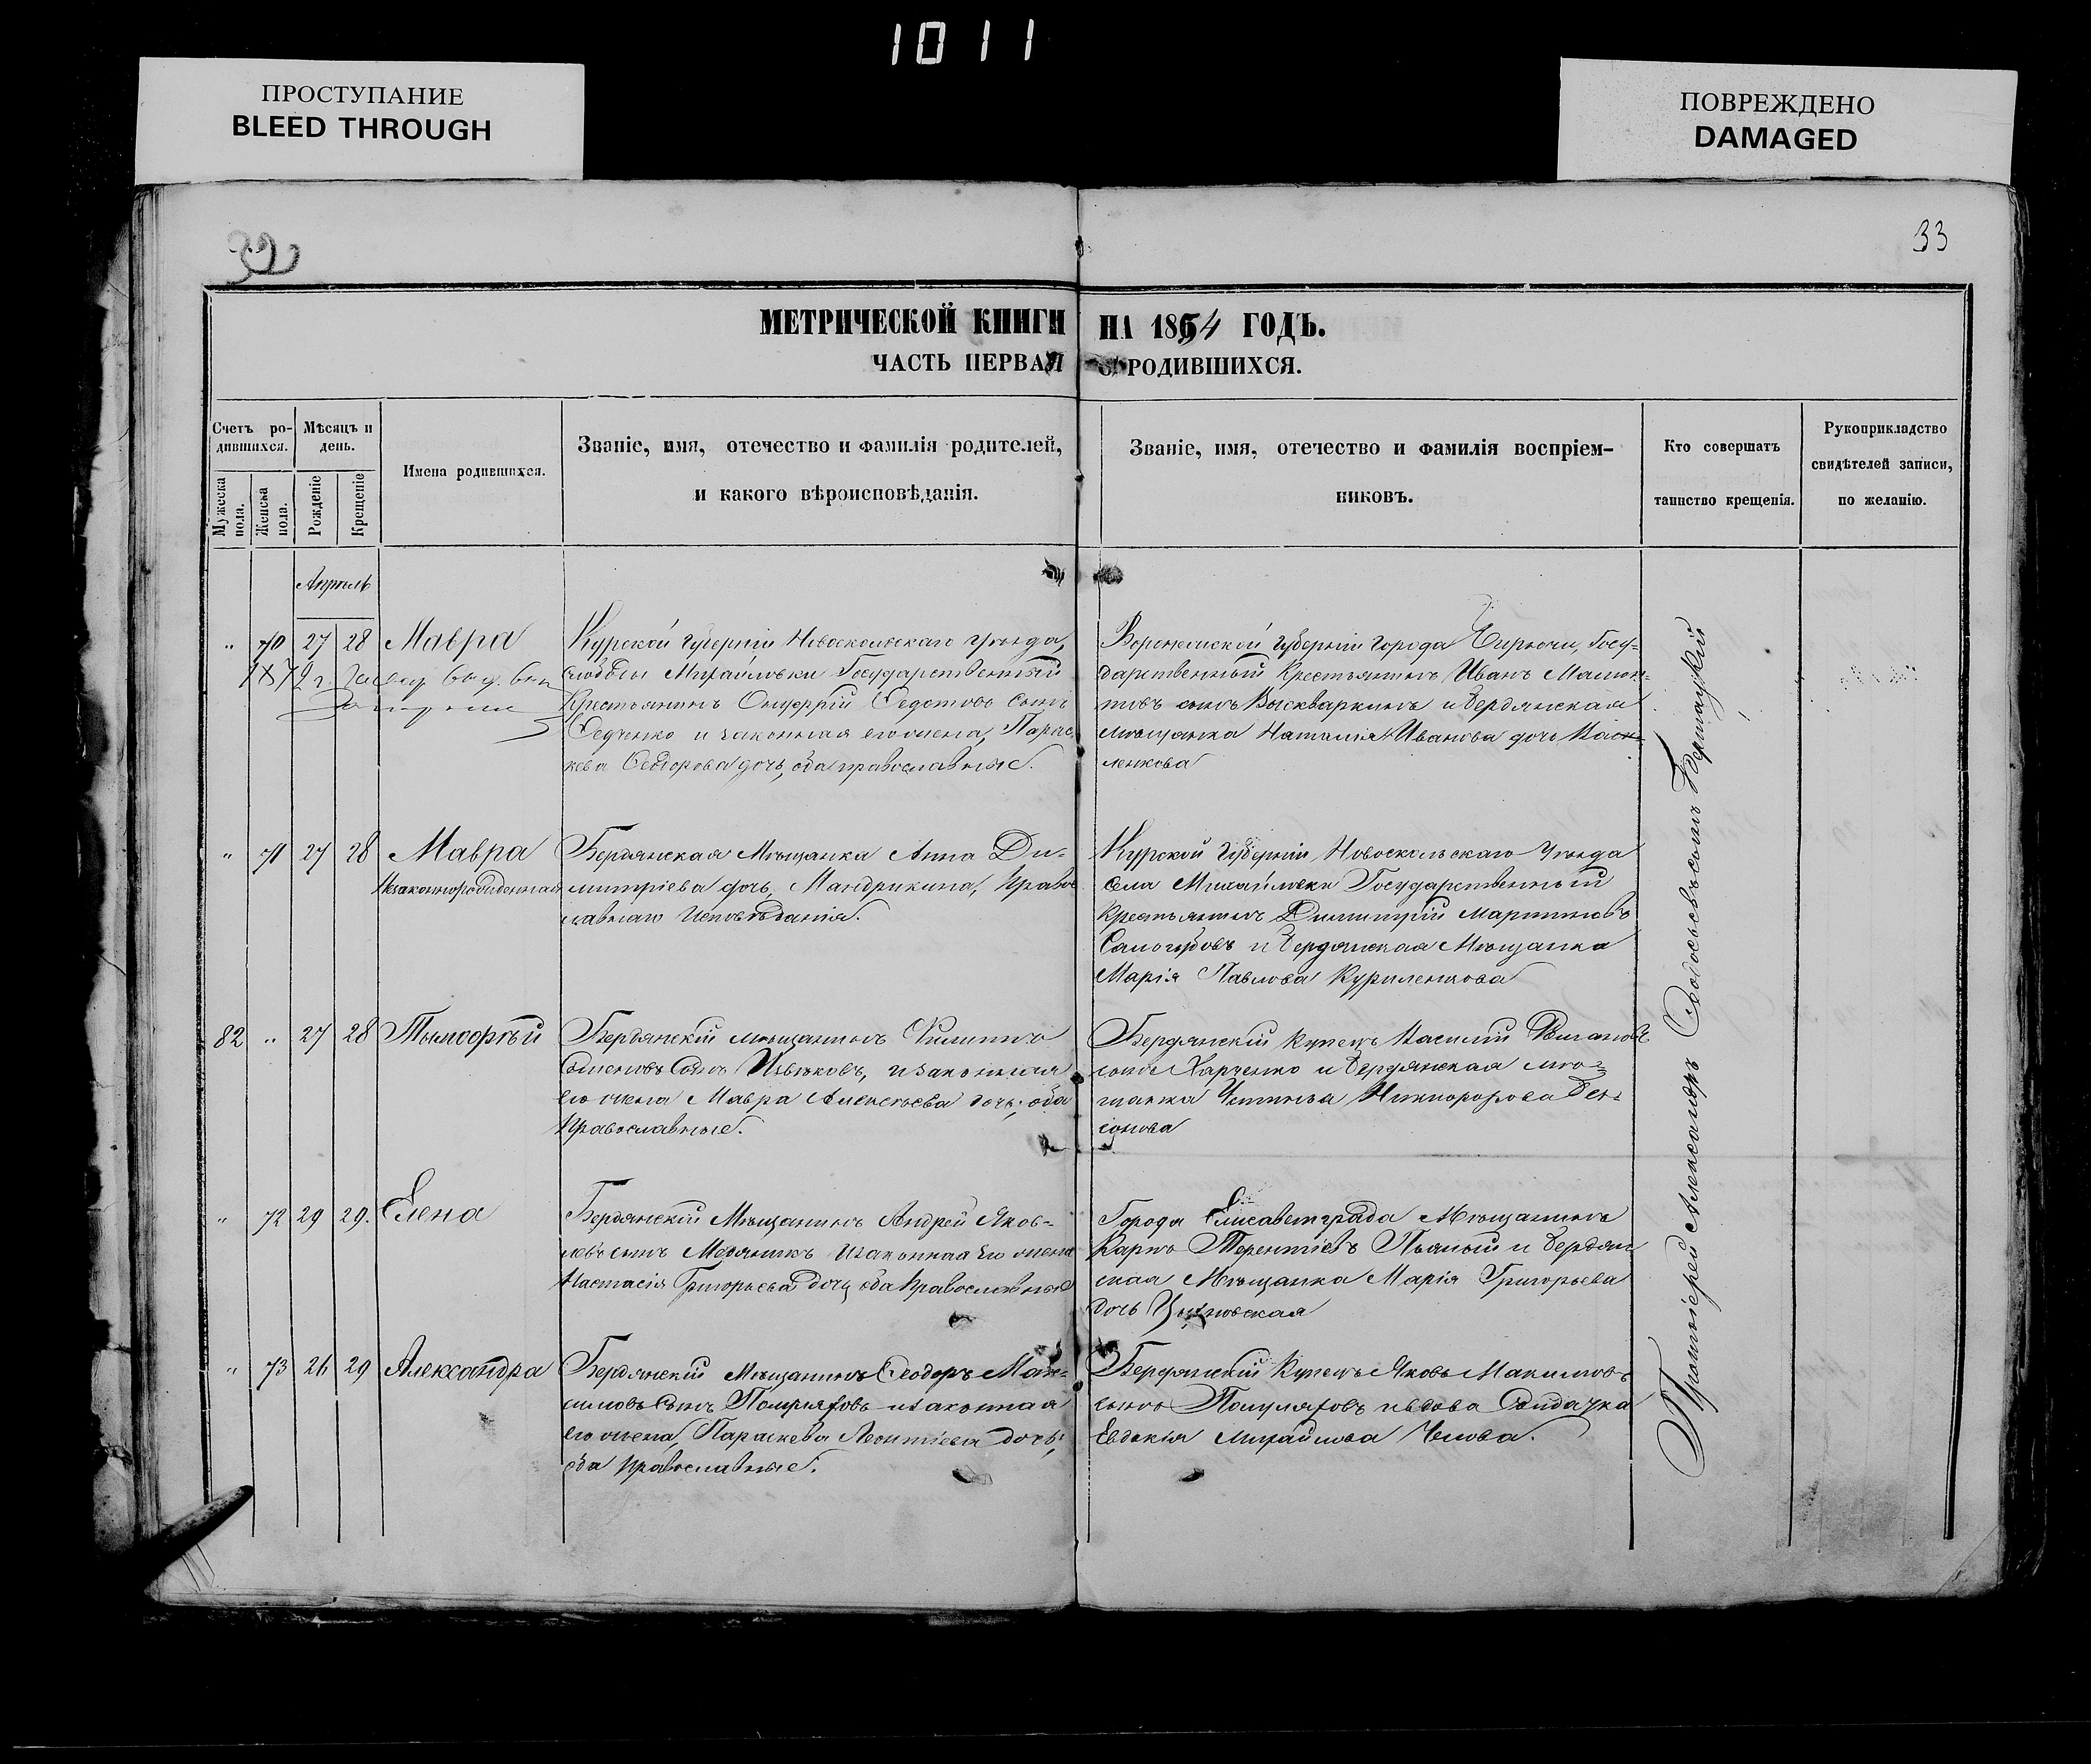 1011
ПРОСТУПАНИЕ
BLEED THROUGH
ПОВРЕЖДЕНО
DAMAGED
32
33
МЕТРИЧЕСКОЙ КНИГИ НА 1864 ГОДЪ.
ЧАСТЬ ПЕРВАЯ О РОДИВШИХСЯ.
Счетъ ро-
дившихся.
Мужеска
пола.
Женска
пола.
Мѣсяцъ и
день.
Рожденіе
Крещеніе
Имена родившихся.
Званіе, имя, отечество и фамилія родителей,
и какого вѣроисповѣданія.
Званіе, имя, отечество и фамилія воспріем-
никовъ.
Кто совершатъ
таинство крещенія.
Рукоприкладство
свидѣтелей записи,
по желанію.
Апрѣль
" 70 27 28 Мавра
Курской губерніи Новооскольскаго уѣзда,
слободы Михайловки Государственный
Крестьянинъ Онуфрій Федотовъ сынъ
и законная его жена, Парас-
кева Феодорова дочь, оба православные.
Воронежской губерніи города Бирючи, Госу-
дарственный Крестьянинъ Иванъ
сынъ Выскваркинъ и Бердянская
мѣщанка Наталія Иванова дочь
ленкова
1879 г.
" 71 27 28 Мавра
Незаконнорожденная
Бердянская Мѣщанка Анна Ди-
митріева дочь Мандрикина, Право
славнаго Исповѣданія.
Курской Губерніи, Новооскольскаго Уѣзда
села Михайловки Государственный
Крестьянинъ Димитрій Мартиновъ
и Бердянская Мѣщанка
Марія Павлова Куриленкова
82 " 27 28 Тимофѣй
Бердянскій мѣщанинъ Филиппъ
Семеновъ Сынъ Ивьковъ, и законная
его жена Мавра Алексѣева дочь; оба
Православные.
Бердянскій купецъ Василій
сынъ Харченко и Бердянская мѣ-
щанка Устинья Никифорова Ден-
сонова
" 72 29 29. Елена
Бердянскій Мѣщанинъ Андрей Яков-
левъ сынъ Медяникъ и законная его жена
Настасія Григорьева дочь оба Православные
Города Елисаветграда Мѣщанинъ
Карпъ Терентіевъ Пьяный и Бердян
ская Мѣщанка Марія Григорьева
дочь
" 73 26 29 Александра
Бердянскій Мѣщанинъ Феодоръ Мак-
симовъ Сынъ Полуляховъ и законная
его жена, Параскева Леонтіева дочь;
оба Православные.
Бердянскій Купецъ Яковъ Максимовъ
сынъ Полуляховъ и вдова Солдатка
Евдокія Михайлова
Протоіерей Александръ